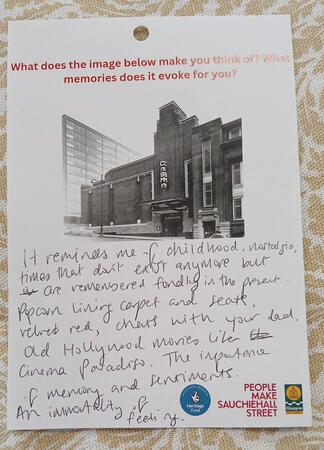 What does the image below make you think of? What
memories does it evoke for you?
It reminds me of childhood, nostalgia,
times that don't exist anymore but
are remembered fondly in the present.
Popcorn lining carpet and seats,
velvet red, chats with your dad.
Old Hollywood movies like
Cinema Paradiso. The importance
of memory and sentiments.
An immortality of
feeling.
Heritage
Fund
PEOPLE
MAKE
SAUCHIEHALL
STREET
Glasgow